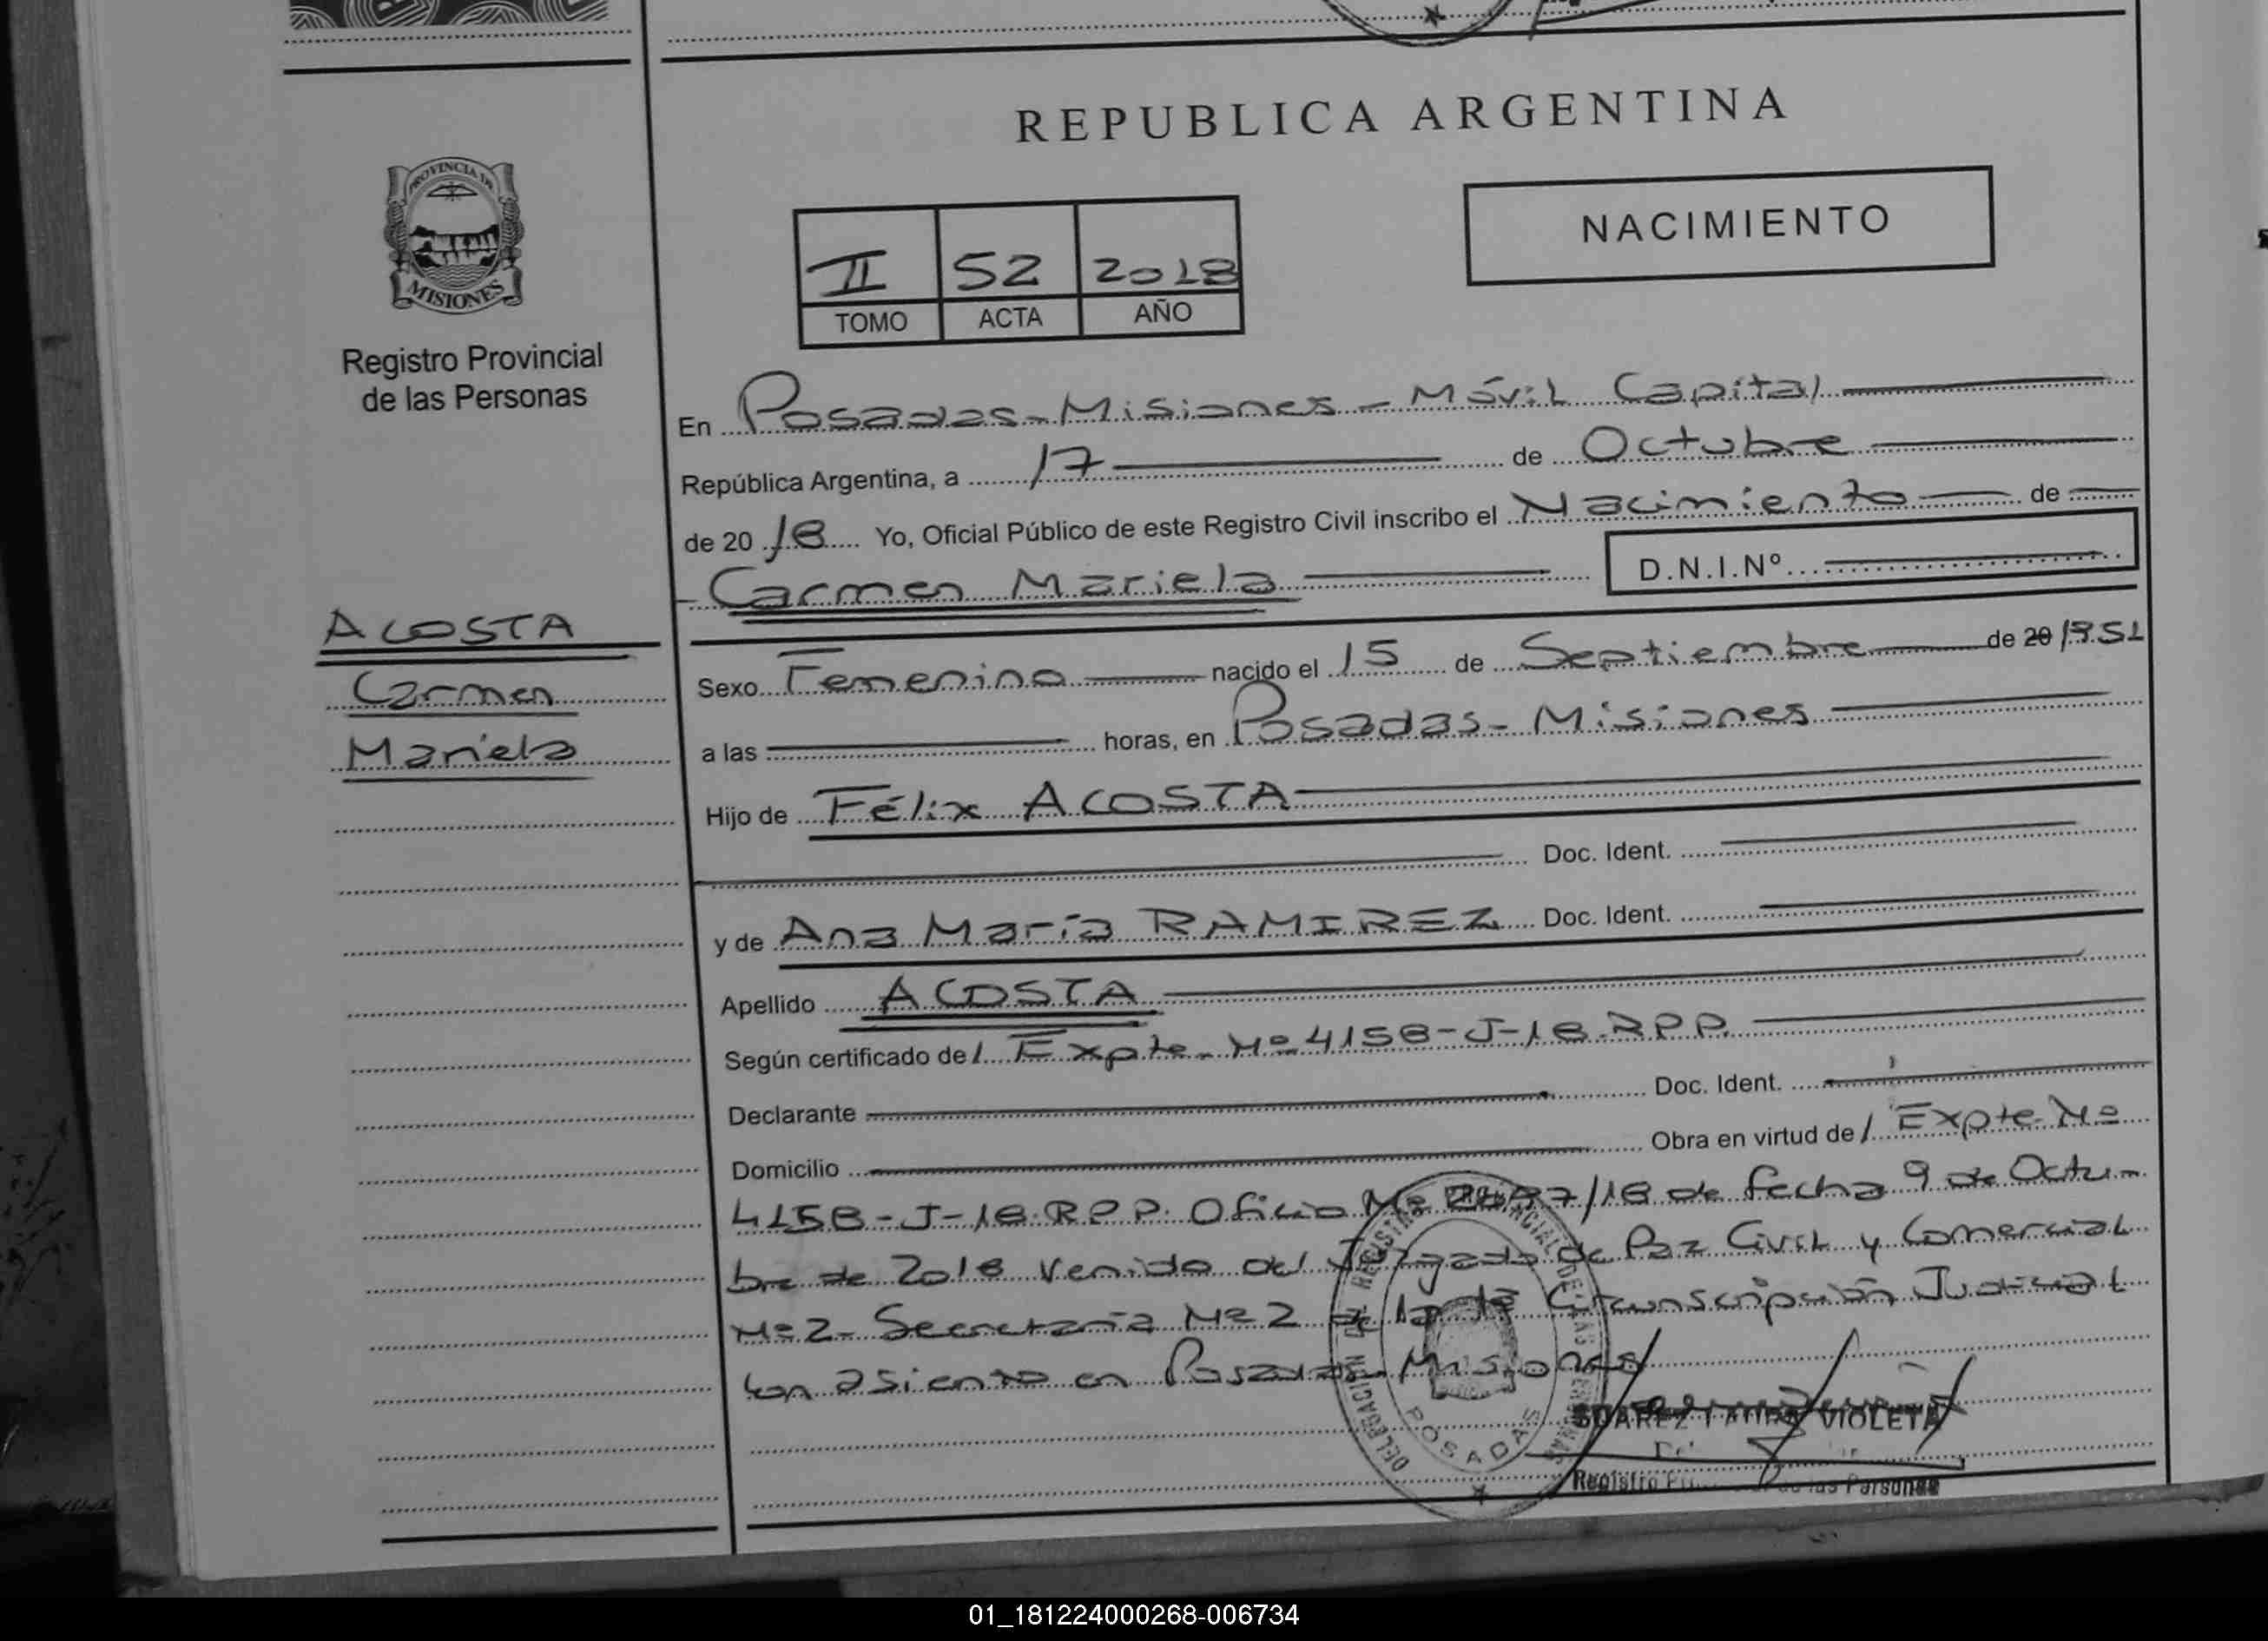 REPUBLICA ARGENTINA
PROVINCIA DE
MISIONES
Registro Provincial
de las Personas
NACIMIENTO
II 52 2018
TOMO ACTA AÑO
En Posadas - Misiones - Móvil Capital
República Argentina, a 17 de Octubre
de 2018 Yo, Oficial Público de este Registro Civil inscribo el Nacimiento de
Carmen Mariela D.N.I.Nº
ACOSTA
Carmen
Mariela
Sexo Femenino nacido el 15 de Septiembre de 20 1951
a las horas, en Posadas - Misiones
Hijo de Félix ACOSTA
Doc. Ident.
y de Ana María RAMIREZ Doc. Ident.
Apellido ACOSTA
Según certificado de/ Expte. Nº 4158-J-18.R.P.P.
Declarante Doc. Ident.
Domicilio Obra en virtud de/ Expte. Nº
4158-J-18.R.P.P. Oficio Nº /18 de fecha 9 de Octu-
bre de 2018 venido del Juzgado de Paz Civil y Comercial
Nº 2 - Secretaría Nº 2 de la 1ª Circunscripción Judicial
con asiento en Posadas - Misiones
DELEGACION DEL REGISTRO PROVINCIAL DE LAS PERSONAS
POSADAS
SUAREZ VIOLETA
Registro de las Personas
01_181224000268-006734